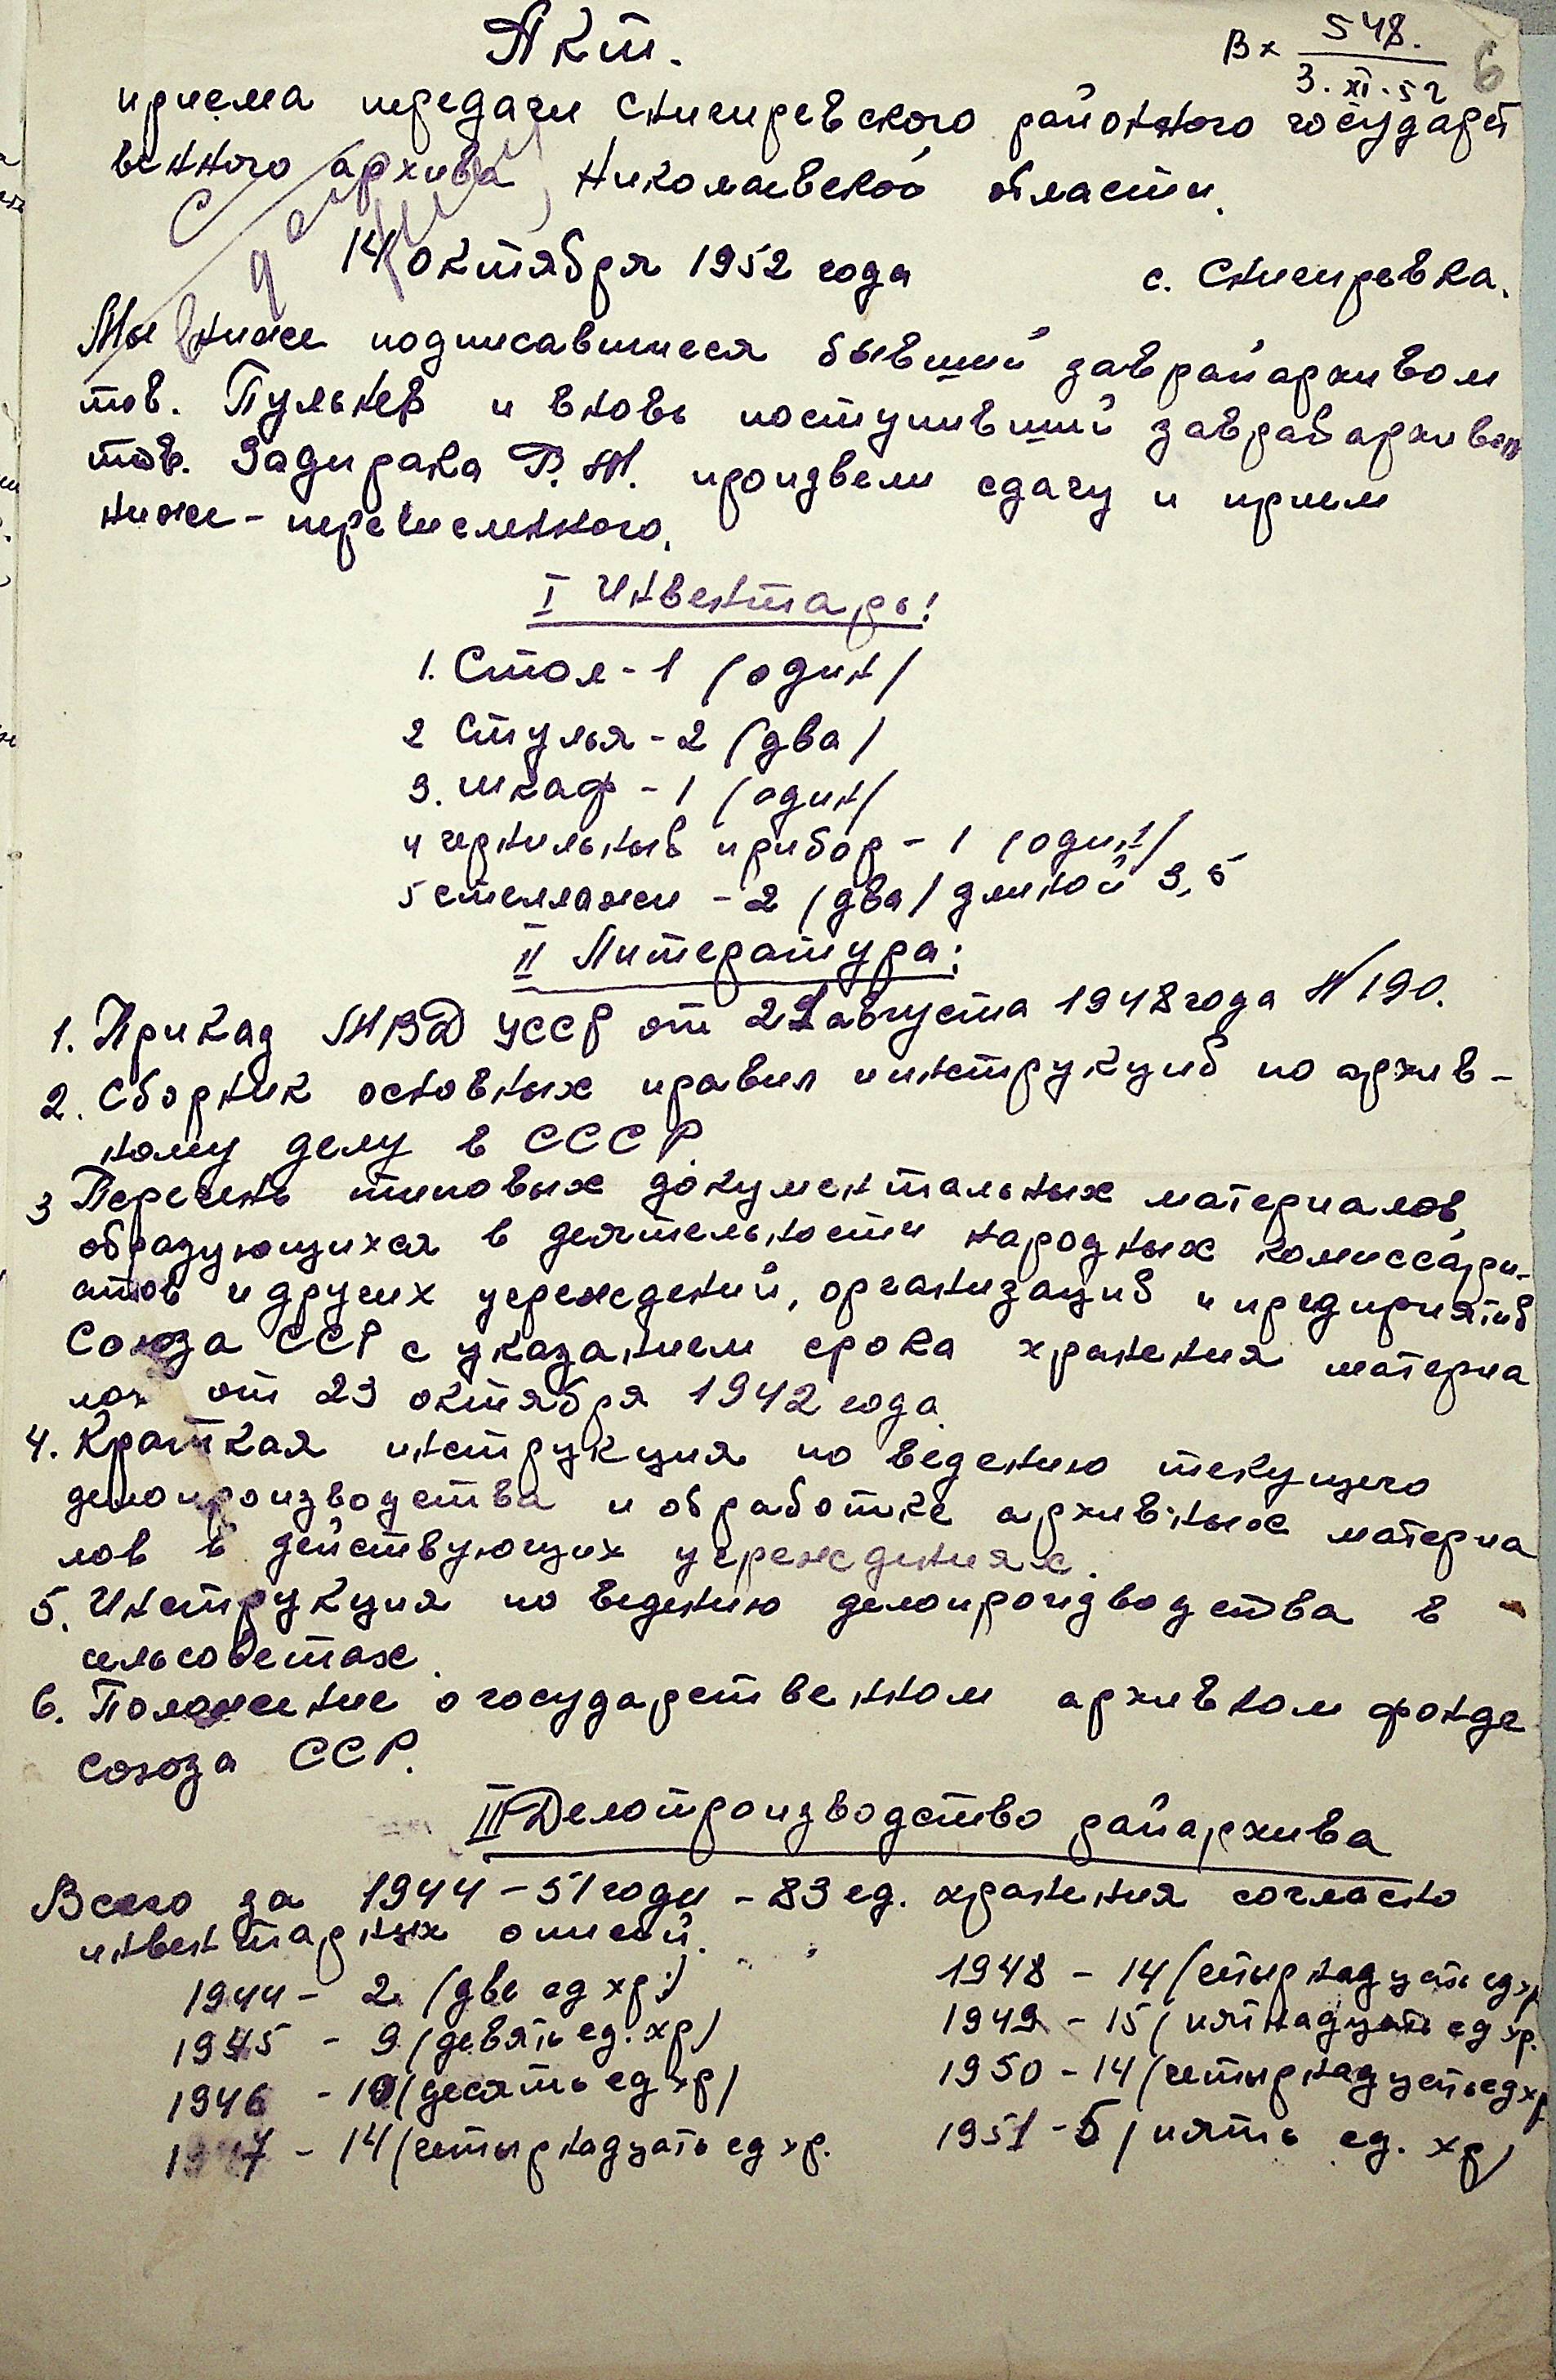 Акт.
Вх 548.
3.XI.52
6
приема передачи Снигиревского районного государст
венного архива Николаевской области.
14 октября 1952 года
с. Снигиревка.
Мы ниже подписавшиеся бывший заврайархивом
тов. Пульнев и вновь поступивший заврайархивом
тов. Задирака В. М. произвели сдачу и прием
ниже-перечисленного.
I Инвентарь:
1. Стол - 1 /один/
2 Стулья - 2 /два/
3. Шкаф - 1 /один/
4 чернильный прибор - 1 /один/
5 стеллажи - 2 /два/ длиной 3,5
II Литература:
1. Приказ МВД УССР от 21 августа 1948 года № 190.
2. Сборник основных правил инструкций по архив-
ному делу в СССР.
3 Перечень типовых документальных материалов,
образующихся в деятельности народных комиссари-
атов и других учреждений, организаций и предприятий
Союза ССР с указанием срока хранения материа
лов от 23 октября 1942 года.
4. Краткая инструкция по ведению текущего
делопроизводства и обработке архивных материа
лов в действующих учреждениях.
5. Инструкция по ведению делопроизводства в
сельсоветах.
6. Положение о государственном архивном фонде
союза ССР.
III Делопроизводство райархива
Всего за 1944-51 годы - 83 ед. хранения согласно
инвентарных описей.
1944 - 2 (две ед хр.)
1945 - 9 (девять ед. хр)
1946 - 10 (десять ед хр)
1947 - 14 (четырнадцать ед хр.
1948 - 14 (четырнадцать ед хр
1949 - 15 (пятнадцать ед хр.
1950 - 14 (четырнадцать ед хр
1951 - 5 (пять ед. хр)